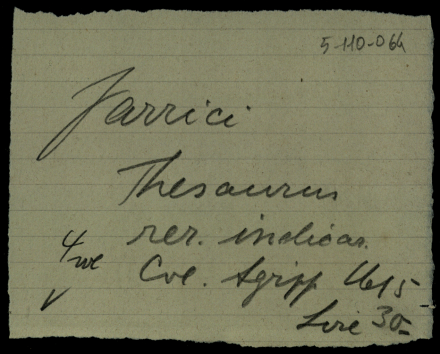 5-110-064
Jarrici
Thesaurus
rer. indicar.
4 
Col. Agripp 1615
Lire 30-